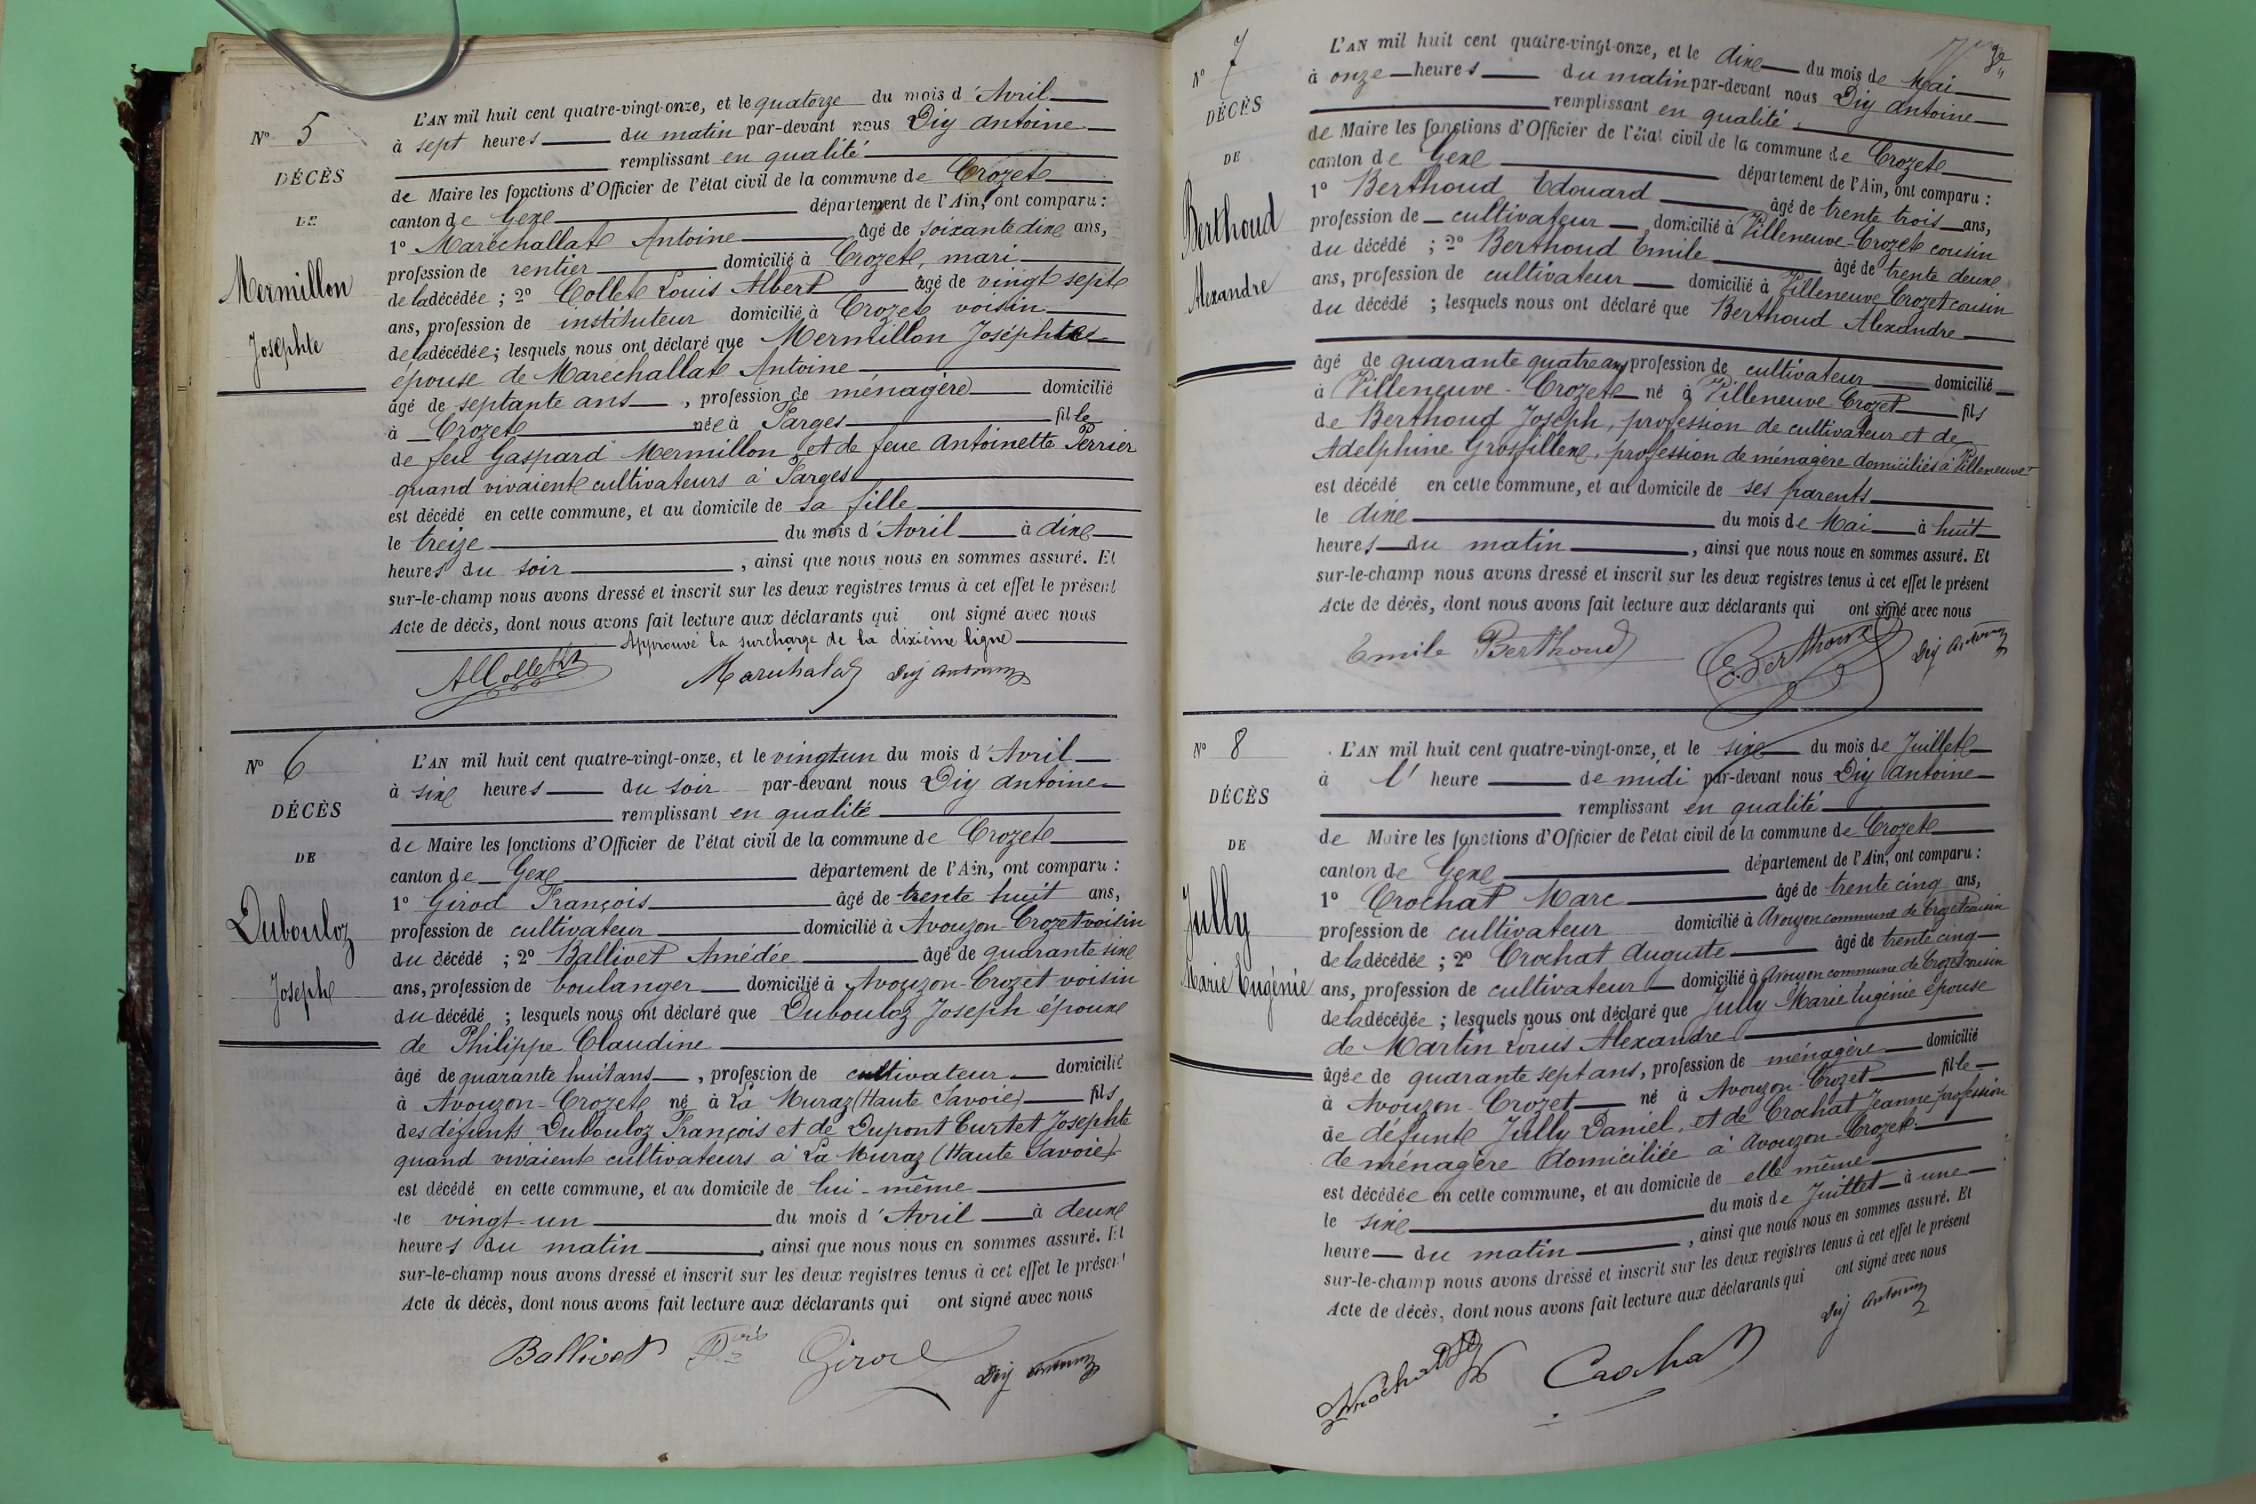 N° 5
DÉCÈS
DE
Mermillon
Josephte
L'AN mil huit cent quatre-vingt-onze, et le quatorze du mois d'Avril
à sept heures du matin par-devant nous Dij Antoine
remplissant en qualité
de Maire les fonctions d'Officier de l'état civil de la commune de Crozet
canton de Gex département de l'Ain, ont comparu :
1° Maréchallat Antoine âgé de soixante dix ans,
profession de rentier domicilié à Crozet, mari
de la décédée ; 2° Collet Louis Albert âgé de vingt sept
ans, profession de instituteur domicilié à Crozet voisin
de la décédée ; lesquels nous ont déclaré que Mermillon Joséphte
épouse de Maréchallat Antoine
âgé de septante ans, profession de ménagère domicilié
à Crozet née à Farges fille
de feu Gaspard Mermillon et de feue Antoinette Perrier
quand vivaient cultivateurs à Farges
est décédé en cette commune, et au domicile de sa fille
le treize du mois d'Avril à dix
heures du soir, ainsi que nous nous en sommes assuré. Et
sur-le-champ nous avons dressé et inscrit sur les deux registres tenus à cet effet le présent
Acte de décès, dont nous avons fait lecture aux déclarants qui ont signé avec nous
Approuvé la surcharge de la dixième ligne
ACollet Marichalat Dij Antoine
N° 6
DÉCÈS
DE
Dubouloz
Joseph
L'AN mil huit cent quatre-vingt-onze, et le vingt un du mois d'Avril
à six heures du soir par-devant nous Dij Antoine
remplissant en qualité
de Maire les fonctions d'Officier de l'état civil de la commune de Crozet
canton de Gex département de l'Ain, ont comparu :
1° Girod François âgé de trente huit ans,
profession de cultivateur domicilié à Avouzon-Crozet voisin
du décédé ; 2° Ballivet Amédée âgé de quarante six
ans, profession de boulanger domicilié à Avouzon-Crozet voisin
du décédé ; lesquels nous ont déclaré que Dubouloz Joseph époux
de Philippe Claudine
âgé de quarante huit ans, profession de cultivateur domicilié
à Avouzon-Crozet né à La Muraz (Haute Savoie) fils
des défunts Dubouloz François et de Dupont Curtet Josephte
quand vivaient cultivateurs à La Muraz (Haute Savoie)
est décédé en cette commune, et au domicile de lui-même
le vingt-un du mois d'Avril à deux
heures du matin, ainsi que nous nous en sommes assuré. Et
sur-le-champ nous avons dressé et inscrit sur les deux registres tenus à cet effet le présent
Acte de décès, dont nous avons fait lecture aux déclarants qui ont signé avec nous
Ballivet Girod Dij Antoine
N° 7
DÉCÈS
DE
Berthoud
Alexandre
L'AN mil huit cent quatre-vingt-onze, et le dix du mois de Mai
à onze heures du matin par-devant nous Dij Antoine
remplissant en qualité
de Maire les fonctions d'Officier de l'état civil de la commune de Crozet
canton de Gex département de l'Ain, ont comparu :
1° Berthoud Edouard âgé de trente trois ans,
profession de cultivateur domicilié à Villeneuve-Crozet cousin
du décédé ; 2° Berthoud Emile âgé de trente deux
ans, profession de cultivateur domicilié à Villeneuve Crozet cousin
du décédé ; lesquels nous ont déclaré que Berthoud Alexandre
âgé de quarante quatre ans profession de cultivateur domicilié
à Villeneuve-Crozet né à Villeneuve Crozet fils
de Berthoud Joseph, profession de cultivateur et de
Adelphine Grosfillex, profession de ménagère domiciliés à Villeneuve
est décédé en cette commune, et au domicile de ses parents
le dix du mois de Mai à huit
heures du matin, ainsi que nous nous en sommes assuré. Et
sur-le-champ nous avons dressé et inscrit sur les deux registres tenus à cet effet le présent
Acte de décès, dont nous avons fait lecture aux déclarants qui ont signé avec nous
Emile Berthoud E. Berthoud Dij Antoine
N° 8
DÉCÈS
DE
Jully
Marie Eugénie
L'AN mil huit cent quatre-vingt-onze, et le six du mois de Juillet
à l' heure de midi par-devant nous Dij Antoine
remplissant en qualité
de Maire les fonctions d'Officier de l'état civil de la commune de Crozet
canton de Gex département de l'Ain, ont comparu :
1° Crochat Marc âgé de trente cinq ans,
profession de cultivateur domicilié à Avouzon commune de Crozet cousin
de la décédée ; 2° Crochat Auguste âgé de trente cinq
ans, profession de cultivateur domicilié à Avouzon commune de Crozet cousin
de la décédée ; lesquels nous ont déclaré que Jully Marie Eugénie épouse
de Martin Louis Alexandre
âgée de quarante sept ans, profession de ménagère domicilié
à Avouzon-Crozet né à Avouzon-Crozet fille
de défunt Jully Daniel, et de Crochat Jeanne profession
de ménagère domiciliée à Avouzon-Crozet
est décédée en cette commune, et au domicile de elle même
le six du mois de Juillet à une
heure du matin, ainsi que nous nous en sommes assuré. Et
sur-le-champ nous avons dressé et inscrit sur les deux registres tenus à cet effet le présent
Acte de décès, dont nous avons fait lecture aux déclarants qui ont signé avec nous
Crochat Dij Antoine